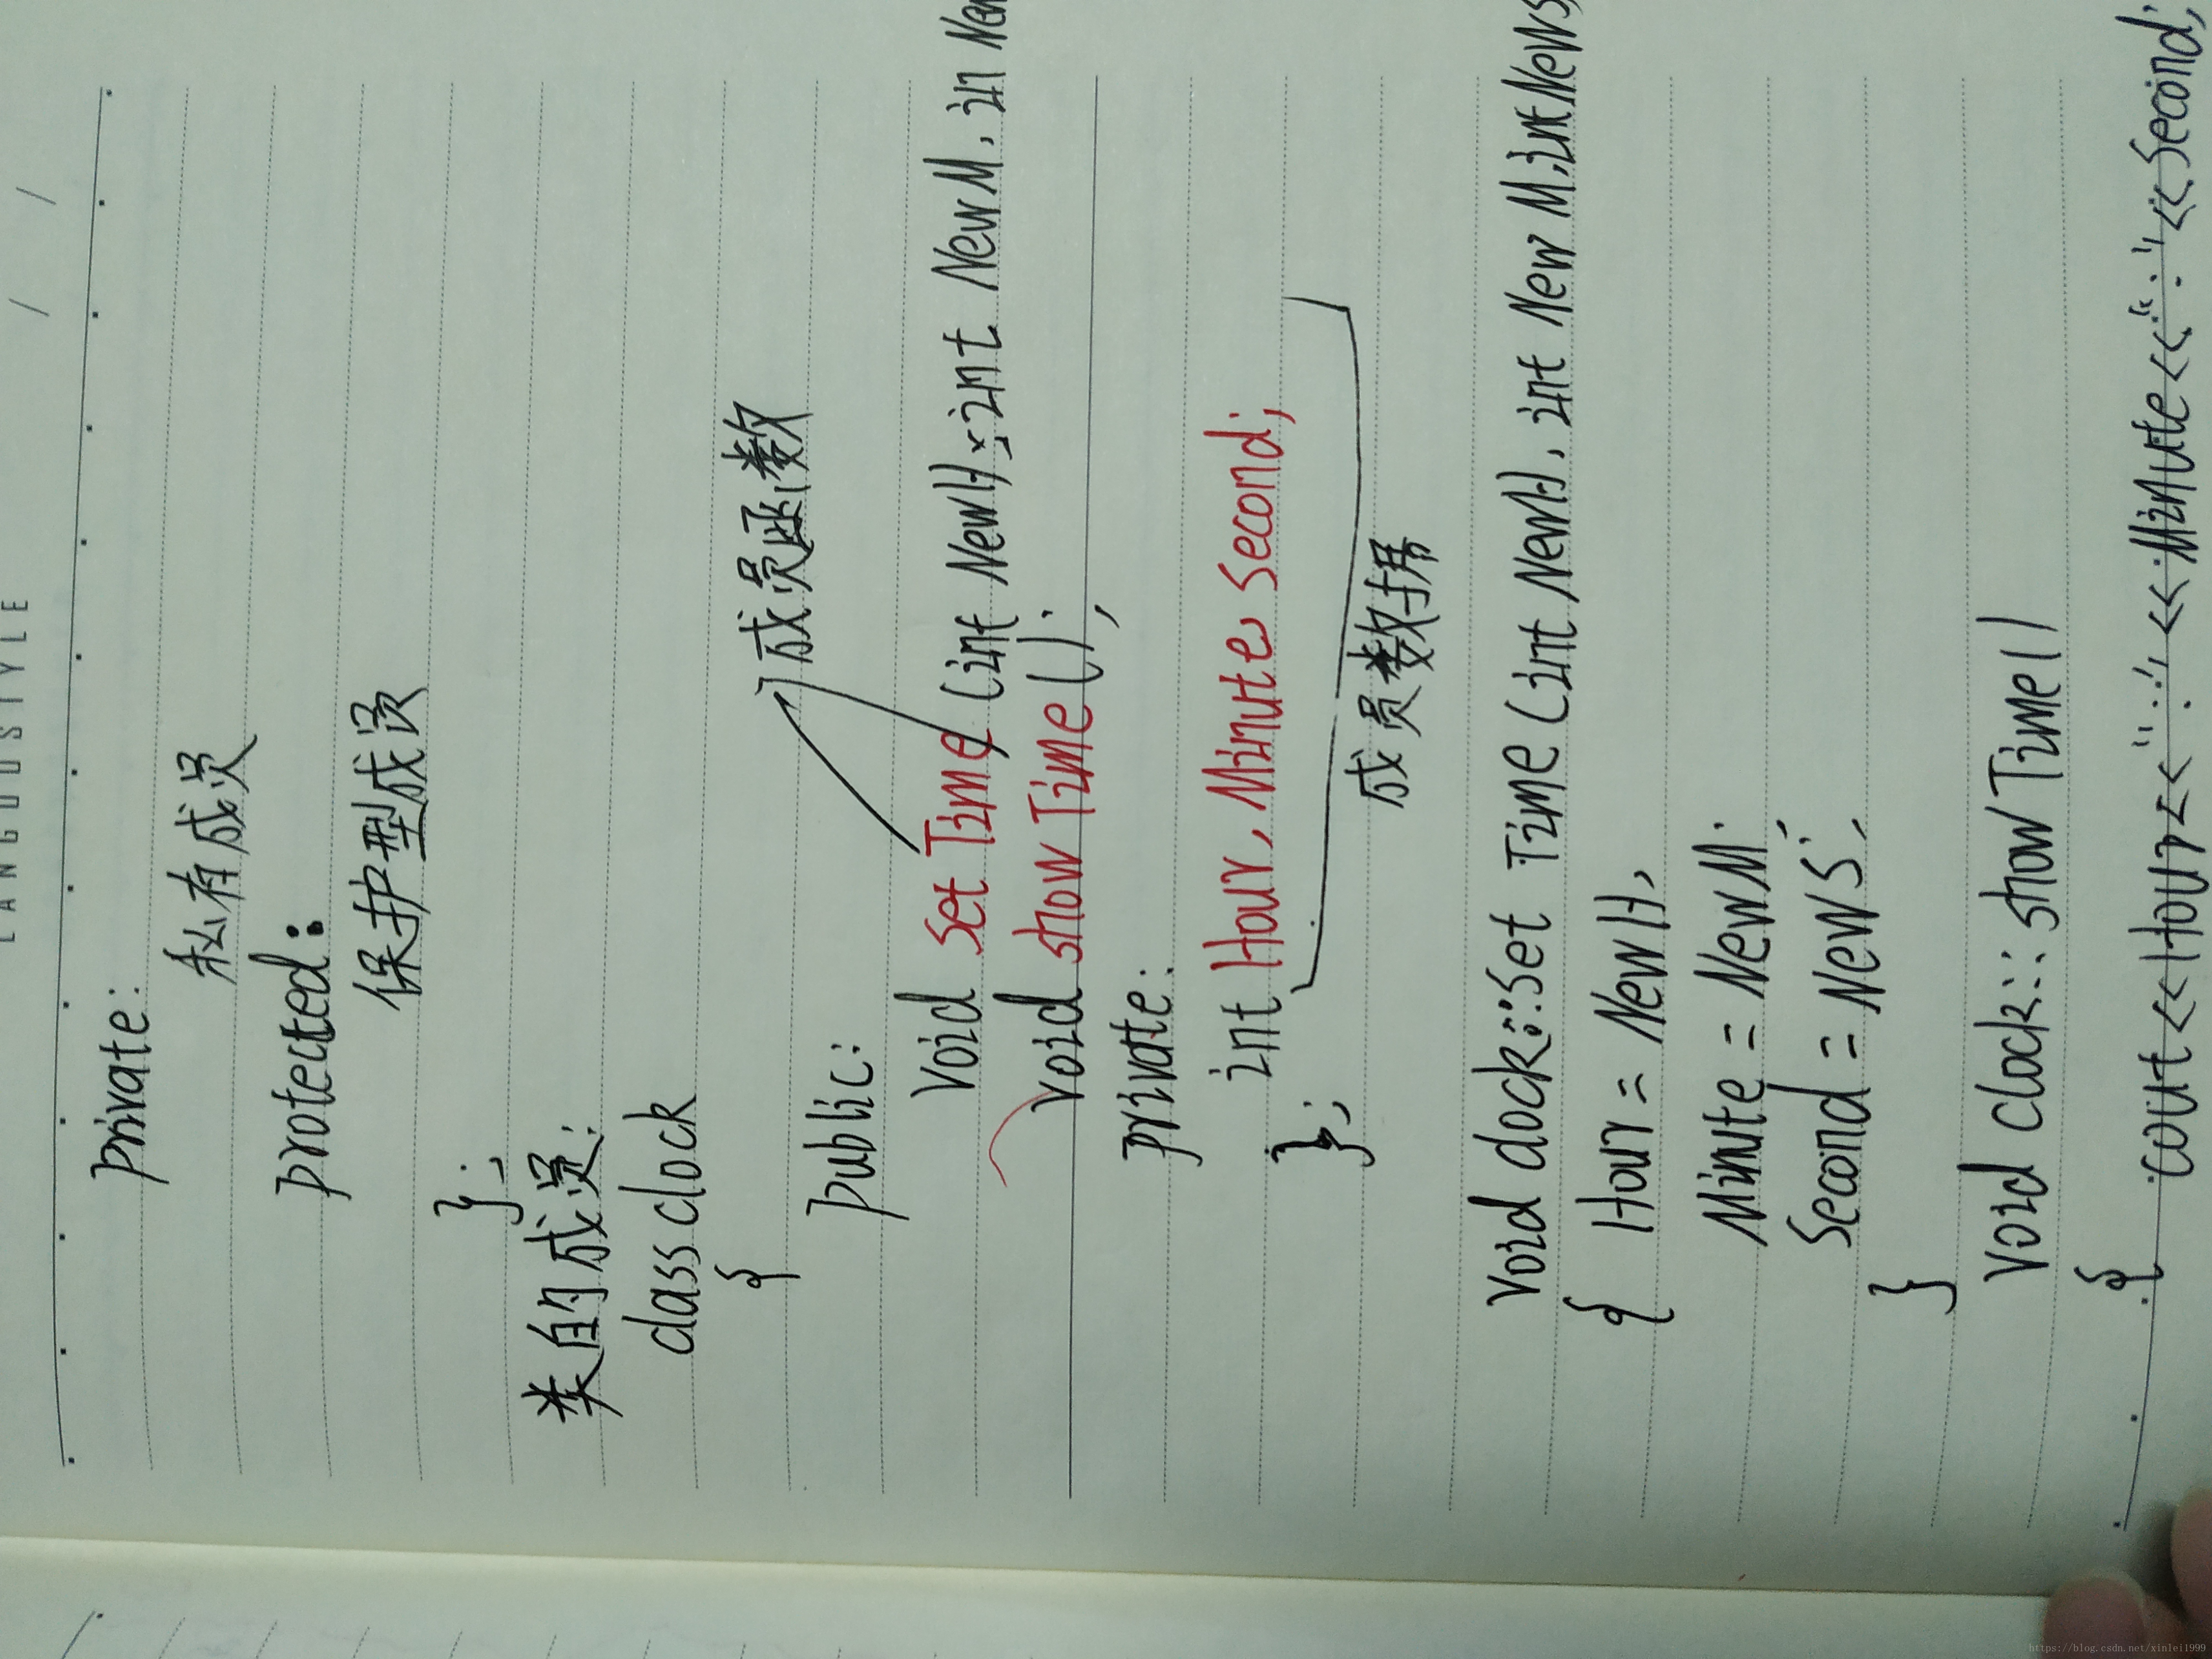 LANGUOSTYLE / /
private:
私有成员
protected:
保护型成员
};
类的成员:
class clock
{
public: 成员函数
void set Time (int NewH, int NewM, in New
void show Time ();
private:
int Hour, Minute, second;
};
成员数据
void clock::set Time (int NewH, int New M, int NewS,
{ Hour = NewH,
Minute = NewM;
Second = NewS;
}
void clock:: show Time()
{ cout << Hour << ":" << Minute << ":" << second;
https://blog.csdn.net/xinlei1999